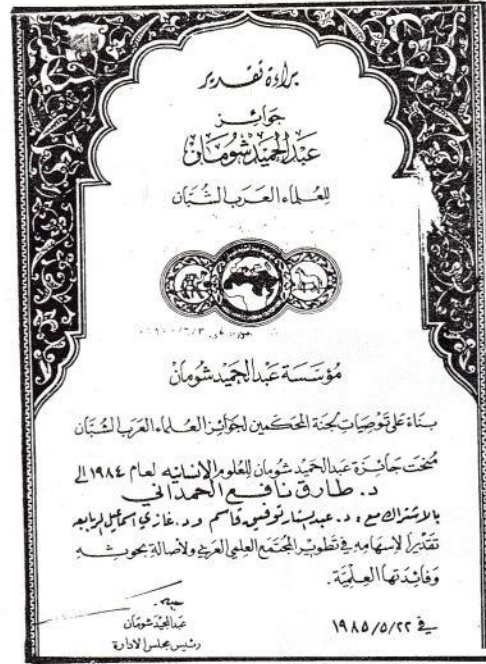 براءة تقدير
جوائز
عبد الحميد شومان
للعلماء العرب الشبان
مؤسسة عبد الحميد شومان
بناءً على توصيات لجنة المحكمين لجوائز العلماء العرب الشبان
منحت جائزة عبد الحميد شومان للعلوم الإنسانية لعام ١٩٨٤ الى
د. طارق نافع الحمداني
بالاشتراك مع : د. عبدالستار توفيق قاسم و د. غازي اسماعيل الربابعه
تقديراً لإسهامه في تطوير المجتمع العلمي العربي ولأصالة بحوثه
وفائدتها العلمية .
في ١٩٨٥/٥/٢٢
عبد المجيد شومان
رئيس مجلس الادارة